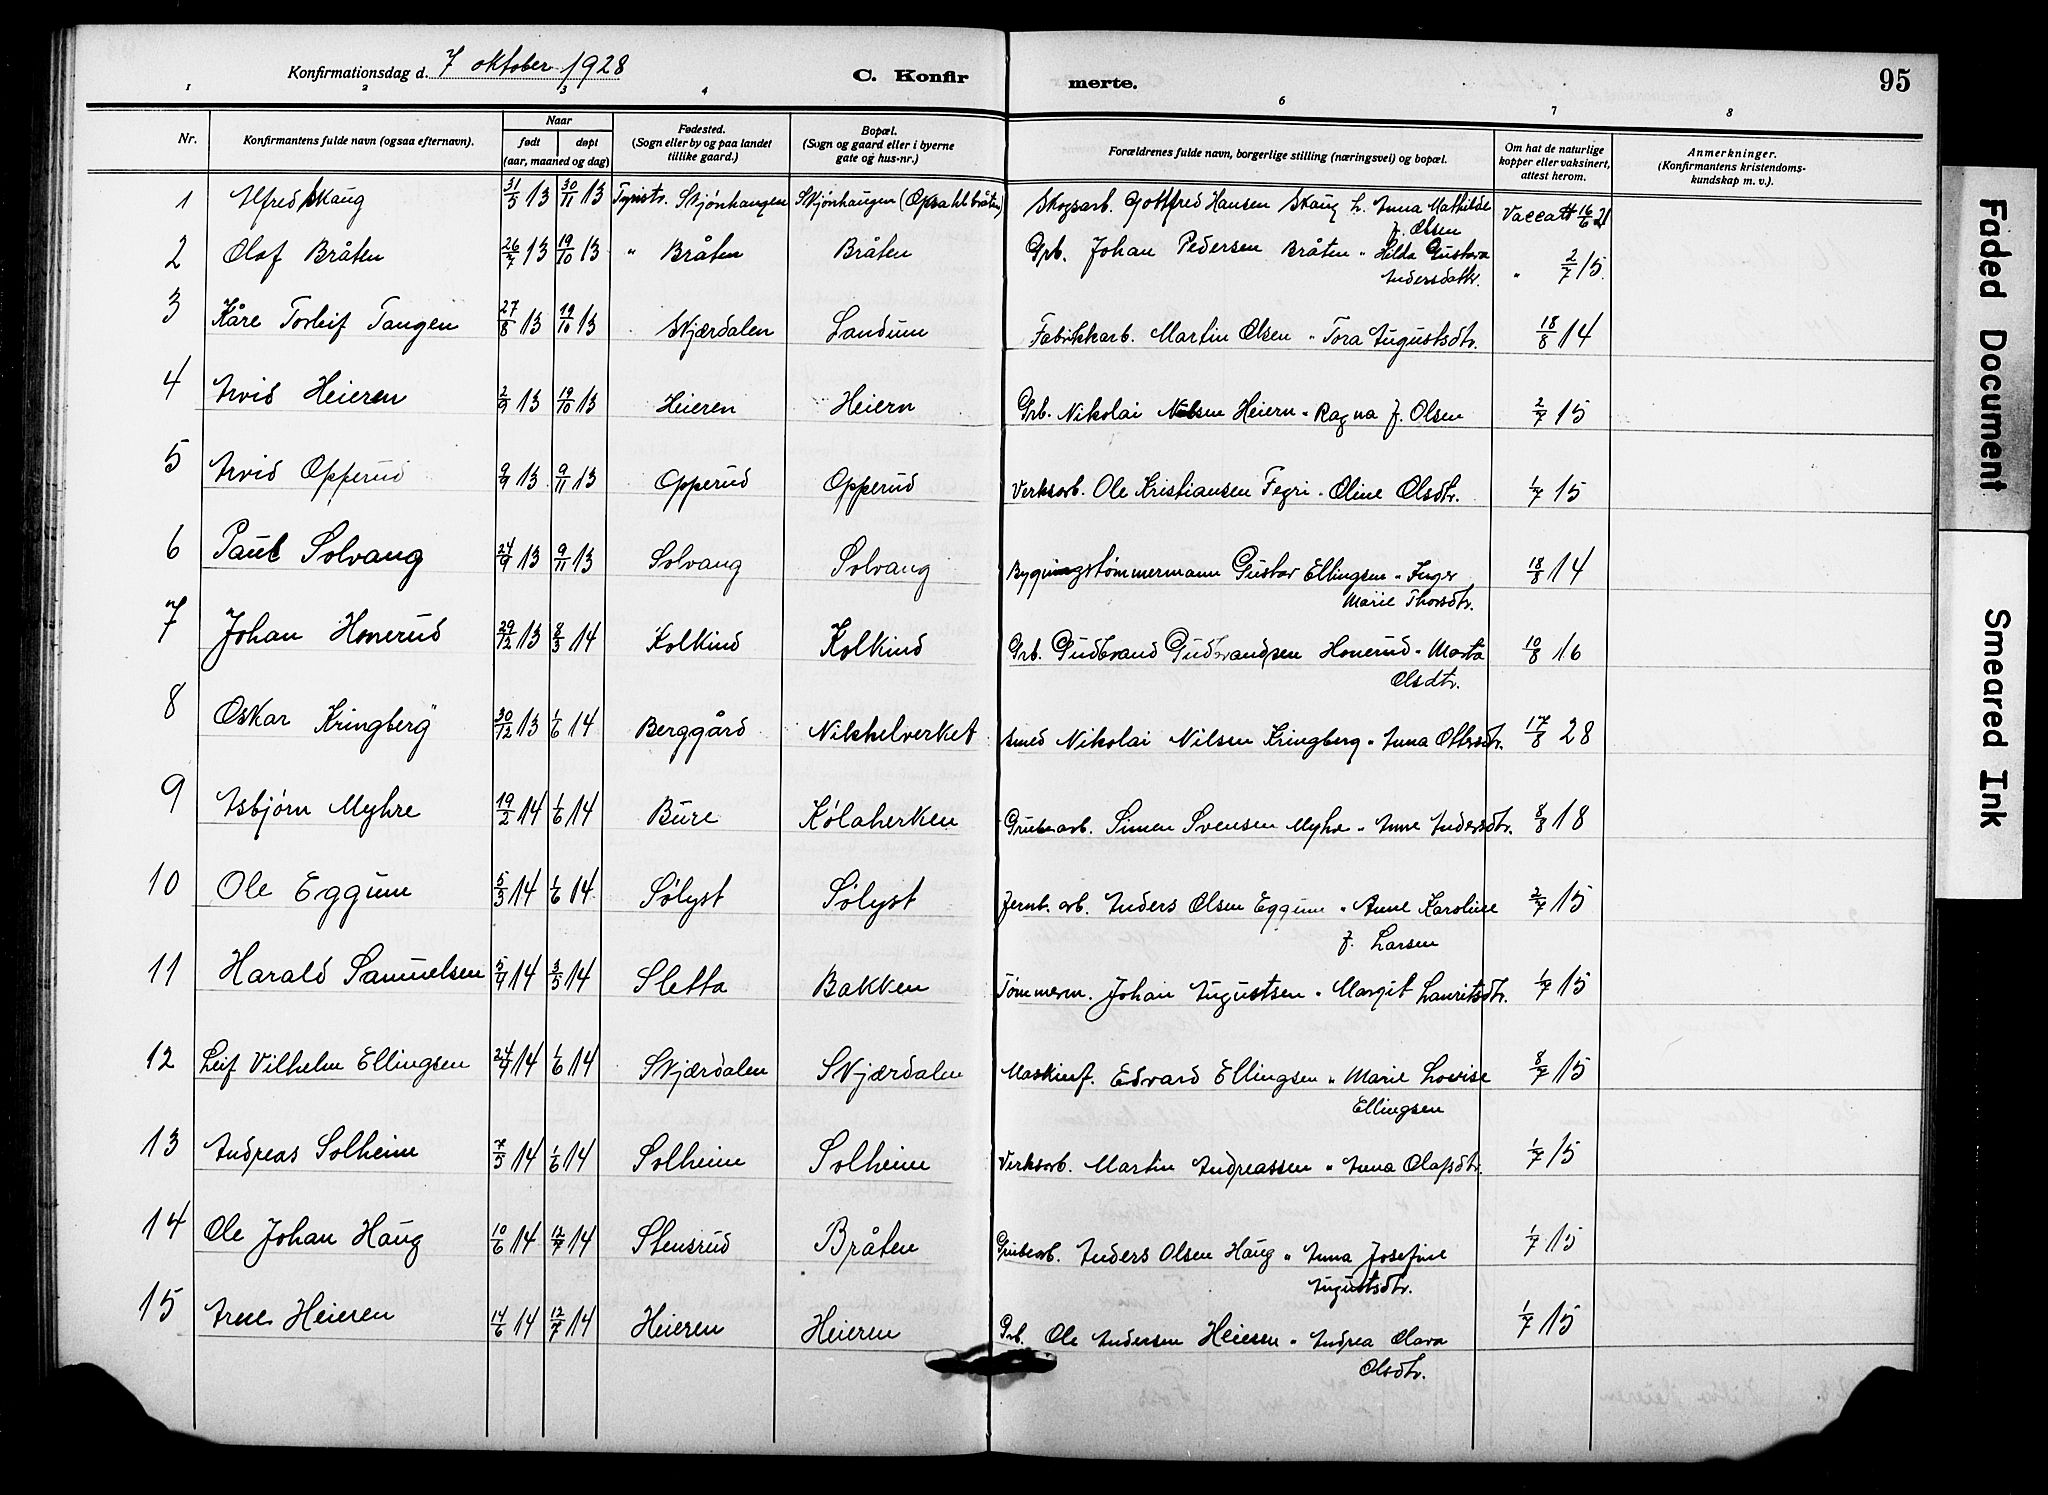 Konfirmationsdag d. 7 oktober 1928 C. Konfirmerte. 95
1 2 3 4 6 7 8
Nr. Konfirmantens fulde navn (ogsaa efternavn). Naar født døpt (aar, maaned og dag) Fødested. (Sogn eller by og paa landet tillike gaard.) Bopæl. (Sogn og gaard eller i byerne gate og hus-nr.) Forældrenes fulde navn, borgerlige stilling (næringsvei) og bopæl. Om hat de naturlige kopper eller vaksinert, attest herom. Anmerkninger. (Konfirmantens kristendomskundskap m. v.).
1 Alfred Skaug 31/5 13 30/11 13 Tyristr. Skjønhaugen Skjønhaugen (Opsahlbråten) Skogsarb. Gottfred Hansen Skaug h. Anna Mathilde f. Olsen Vacc. att 16/6 21
2 Olaf Bråten 26/7 13 19/10 13 " Bråten Bråten Grb. Johan Pedersen Bråten " Hilda Gustava Andersdattr. " 2/7 15.
3 Kåre Torleif Tangen 27/8 13 19/10 13 " Skjærdalen Landum Fabrikkarb. Martin Olsen " Tora Augustsdtr. 18/8 14
4 Arvid Heieren 2/9 13 19/10 13 Heieren Heiern Grb. Nikolai Nilsen Heiern " Ragna f. Olsen 2/7 15
5 Arvid Opperud 9/9 13 9/11 13 Opperud Opperud Verksarb. Ole Kristiansen Fegri " Oline Olsdtr. 1/7 15
6 Paul Solvang 24/9 13 9/11 13 Solvang Solvang Bygningstømmermann Gustav Ellingsen " Inger Marie Thorsdtr. 18/8 14
7 Johan Honerud 29/12 13 8/3 14 Kolkind Kolkind Grb. Gudbrand Gudbrandsen Honerud " Marta Olsdtr. 10/8 16
8 Oskar Kringberg 30/12 13 1/6 14 Berggård Nikkelverket Smed Nikolai Nilsen Kringberg " Anna Ottersdtr. 17/8 28
9 Asbjørn Myhre 19/2 14 1/6 14 Bure Kølaherken Grubearb. Simen Svensen Myhre " Anne Andersdtr. 8/8 18
10 Ole Eggum 5/3 14 1/6 14 Sølyst Sølyst Jernb. arb. Anders Olsen Eggum " Anne Karoline f. Larsen 2/7 15
11 Harald Samuelsen 5/4 14 3/5 14 Sletta Bakken Tømmerm. Johan Augustsen " Margit Lauritsdtr. 1/7 15
12 Leif Vilhelm Ellingsen 24/4 14 1/6 14 Skjærdalen Skjærdalen Maskinf. Edvard Ellingsen " Marie Lovise Ellingsen 8/7 15
13 Andreas Solheim 7/5 14 1/6 14 Solheim Solheim Verksarb. Martin Andreassen " Anna Olafsdtr. 1/7 15
14 Ole Johan Haug 10/6 14 12/7 14 Stensrud Bråten Grubearb. Anders Olsen Haug " Anna Josefine Augustsdtr. 1/7 15
15 Arne Heieren 14/6 14 12/7 14 Heieren Heieren Grb. Ole Andersen Heieren " Andrea Olava Olsdtr. 1/7 15
Faded Document
Smeared Ink